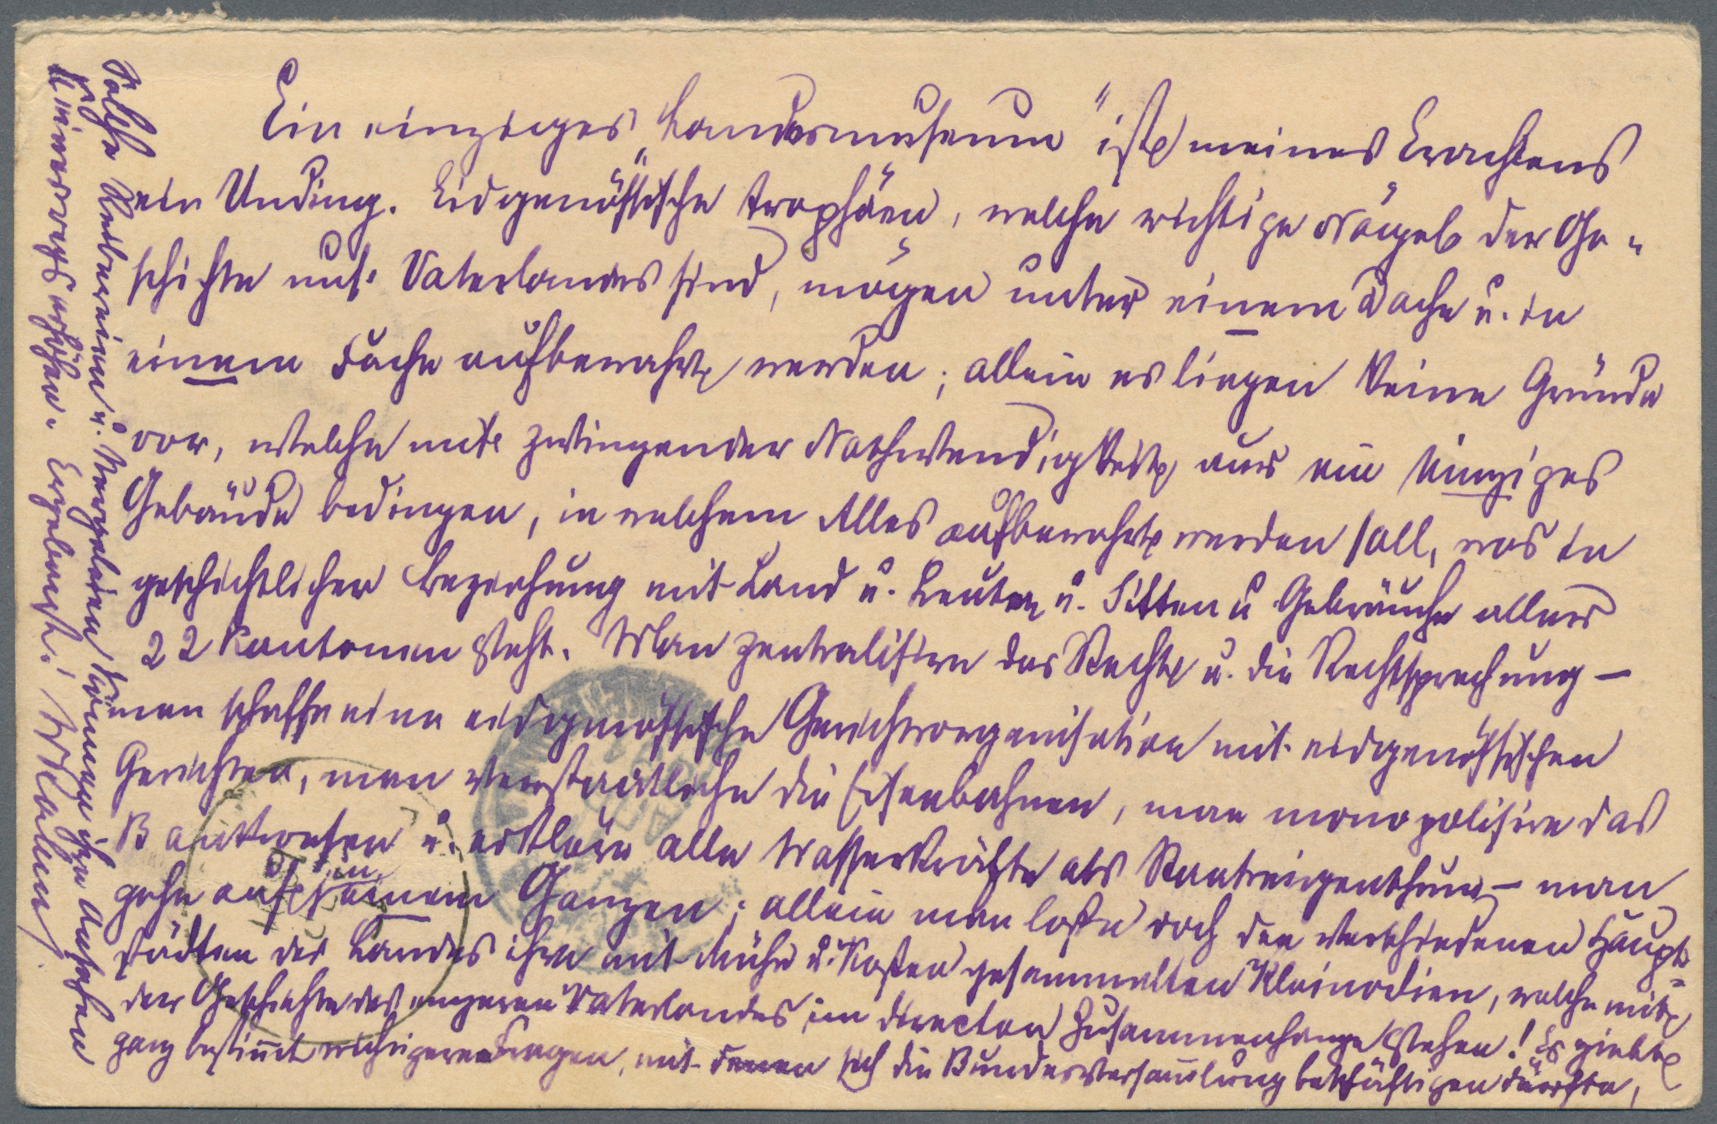 Ein einziges „Landesmuseum" ist meines Erachtens
ein Unding. Eidgenössische Trophäen, welche wichtige Nägel der Ge-
schichte uns. Vaterlandes sind, mögen unter einem Dache u. in
einem Fache aufbewahrt werden; allein es liegen keine Gründe
vor, welche mit zwingender Nothwendigkeit nur ein einziges
Gebäude bedingen, in welchem Alles aufbewahrt werden soll, was in
geschichtlicher Beziehung mit Land u. Leuten u. Sitten u Gebräuche aller
22 Kantonen steht. Man zentralisire das Recht u. die Rechtsprechung —
man schaffe eine eidgenössische Gerichtsorganisation mit eidgenössischen
Gerichten, man verstaatliche die Eisenbahnen, man monopolisire das
Banknotesen u. erkläre alle Wasserkräfte als Staatseigenthum — man
gehe auf in einem Ganzen; allein man lasse doch den verschiedenen Haupt-
städten des Landes ihre mit Mühe u. Kosten gesammelten Kleinodien, welche mit
der Geschichte des engeren Vaterlandes im directen Zusammenhange stehen! Es giebt
ganz bestimmt wichtigere Fragen, mit denen sich die Bundesversammlung beschäftigen dürfte,
Solche Reibereien u. Nergeleien können ihr Ansehen
keineswegs erhöhen. Ergebenst: